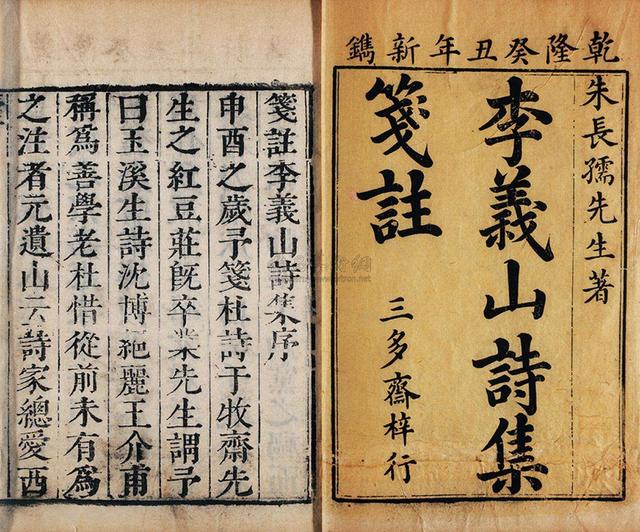 乾隆癸丑年新鐫
朱長孺先生著
李義山詩集
箋註
三多齋梓行
箋註李義山詩集序
申酉之歲予箋杜詩于牧齋先
生之紅豆莊既卒業先生謂予
曰玉溪生詩沈博絕麗王介甫
稱為善學老杜惜從前未有為
之注者元遺山云詩家總愛西